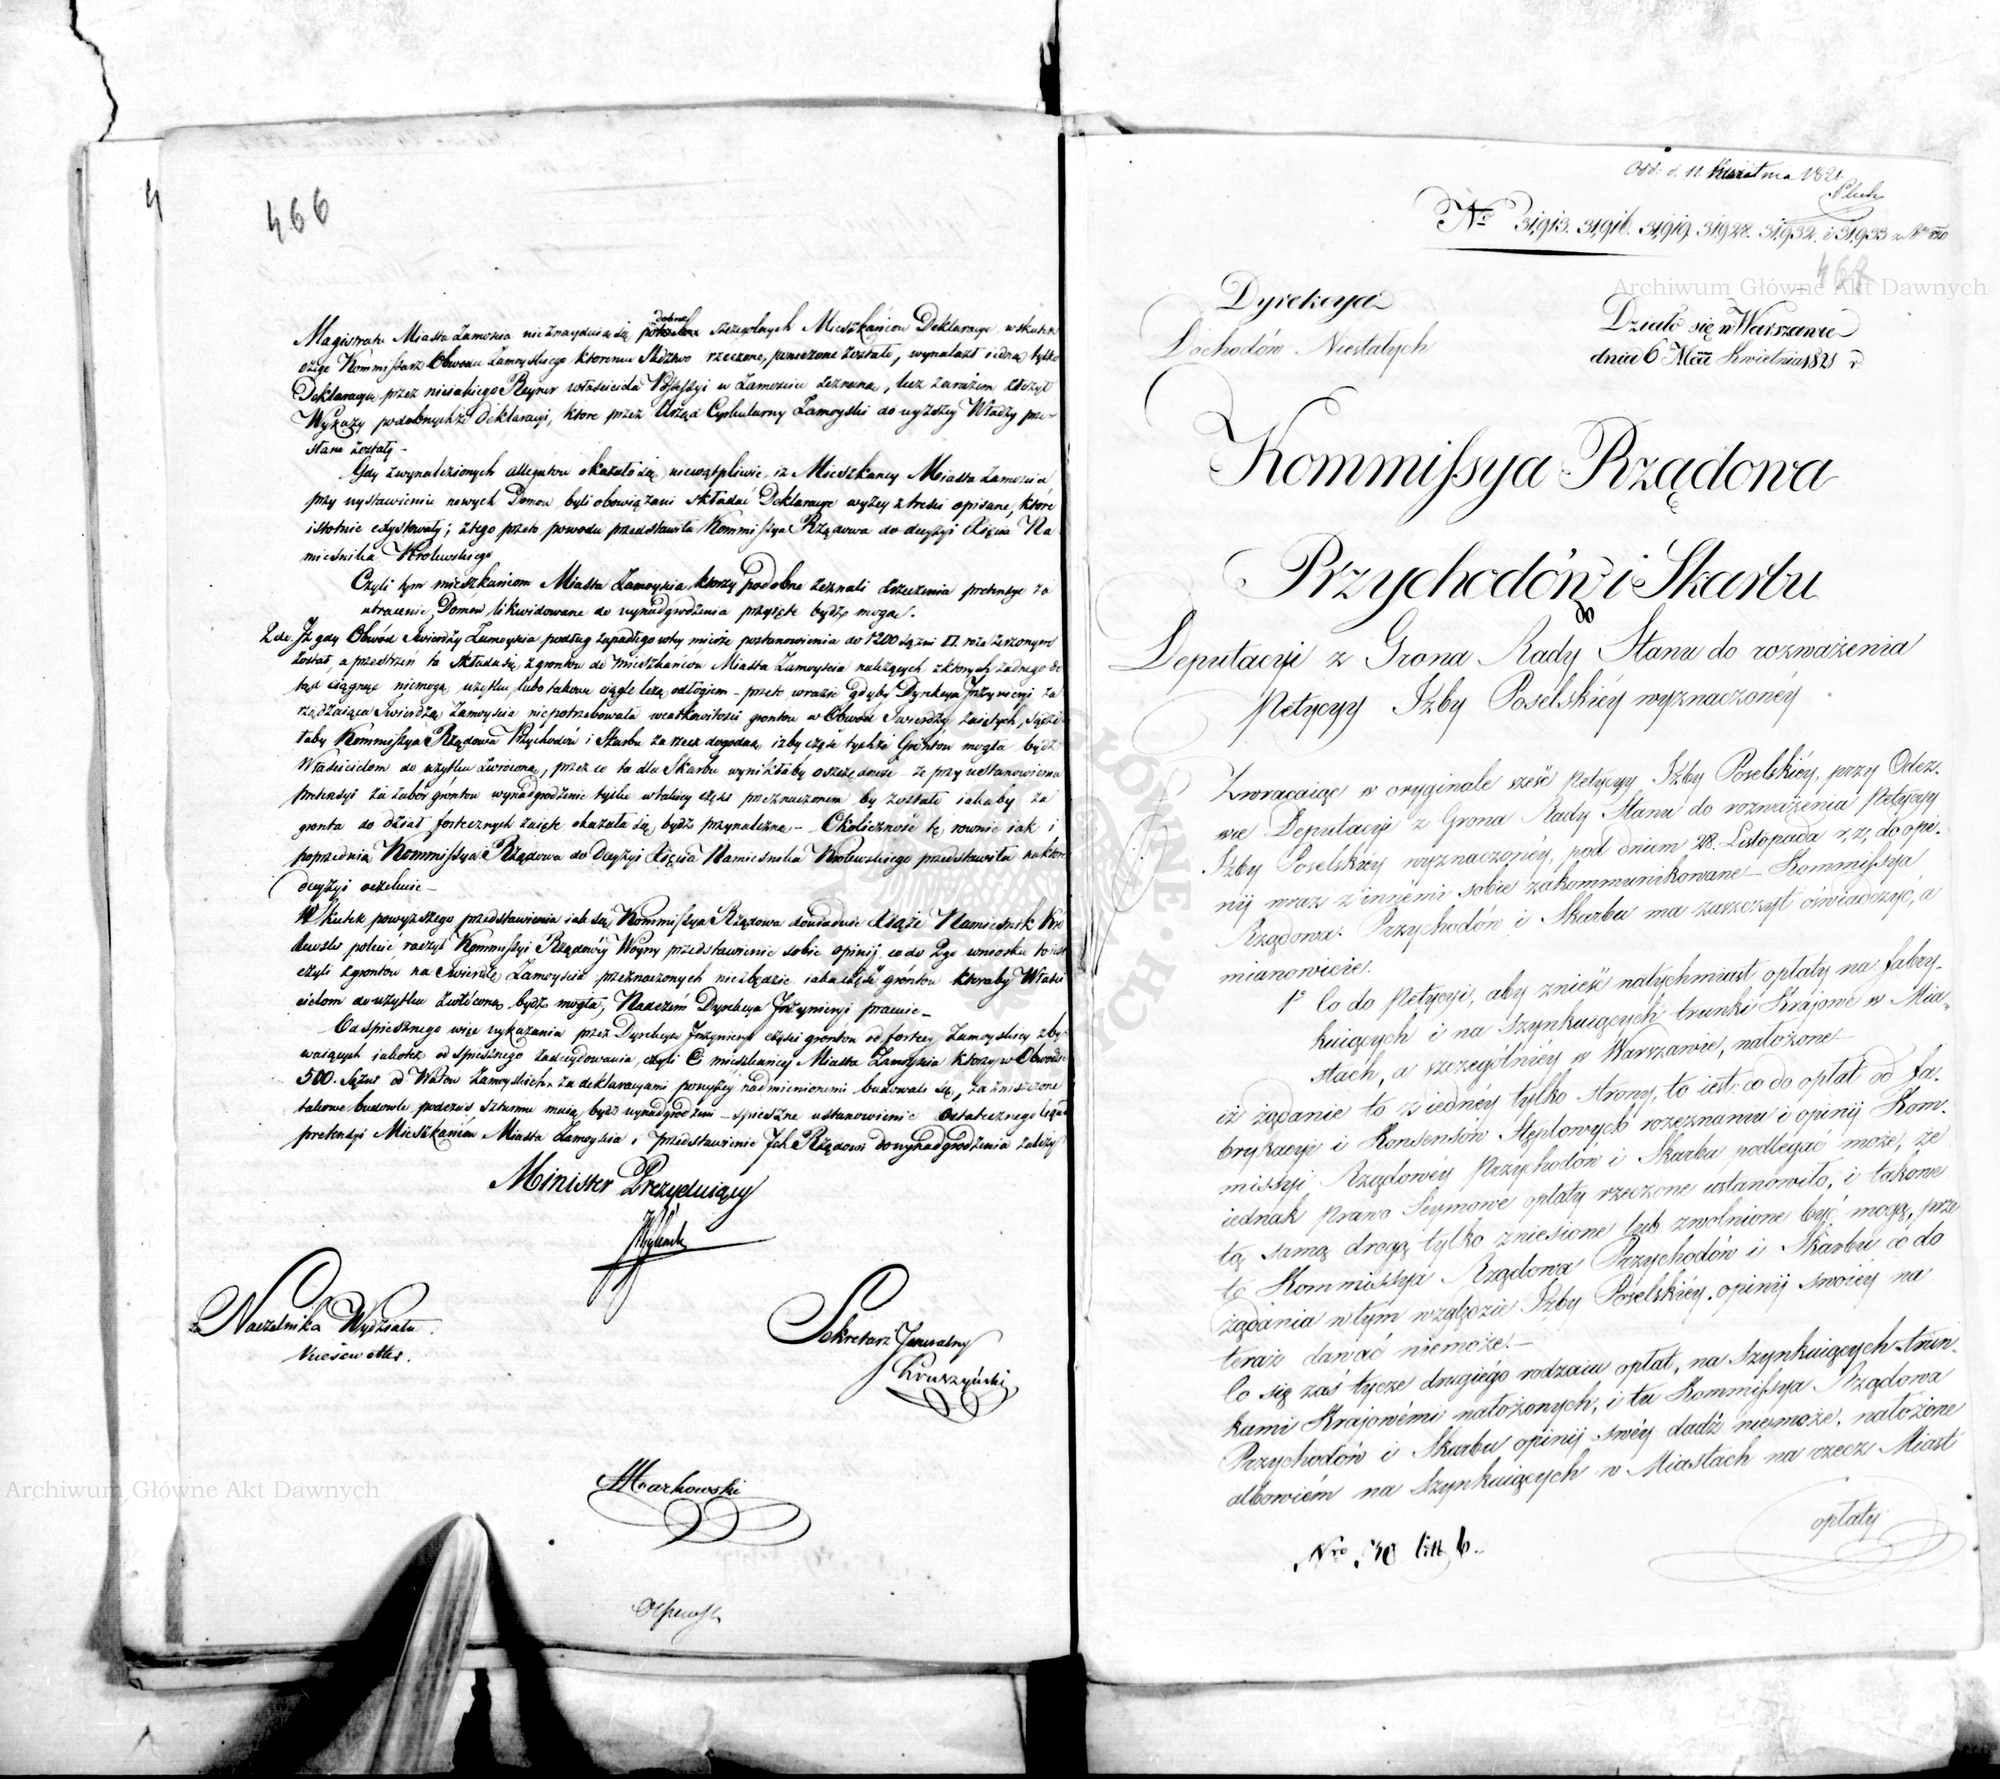 4
466
Magistratu Miasta Zamościa nieznayduią się podobne szczególnych Mieszkańcow Deklaracye, w skutek
czego Kommissarz Obwodu Zamoyskiego ktoremu Śledztwo rzeczone, poruczone zostało, wynalazł iedną tylko
Deklaracyą przez nieiakiego Reyner właściciela Possessyi w Zamościu zeznaną, lecz zarazem złożył
Wykazy podobnychże Deklaracyi, ktore przez Urząd Cyrkularny Zamoyski do wyższey Władzy prze-
słane zostały –
Gdy z wynalezionych allegatow okazało się niewątpliwie, iż Mieszkańcy Miasta Zamościa
przy wystawieniu nowych Domow byli obowiązani składać Deklaracye wyżey z treści opisane, które
istotnie exystowały; z tego przeto powodu przedstawiła Kommissya Rządowa do decyzyi Xięcia Na
miestnika Krolewskiego
Czyli tym mieszkańcom Miasta Zamoyscia, ktorzy podobne zeznali zrzeczenia pretensye za
utracenie Domow likwidowane do wynadgrodzenia przyięte bydź mogą.
2do. Iż gdy Obwód Twierdzy Zamoyscia podług zapadłego w tey mierze postanowienia do 1200 sążni rozszerzonym
został, a przestrzeń ta składa się z gruntow do mieszkańcow Miasta Zamoyscia należących z ktorych żadnego do
tąd ciągnąć niemogą użytku, lubo takowe ciągle leżą odłogiem – przeto w razie gdyby Dyrekcya Inżynieryi za
rządzaiąca Twierdzą Zamoyscia niepotrzebowała wcałkowitości gruntow w Obwód Twierdzy zaiętych, sądzi
łaby Kommissya Rządowa Przychodów i Skarbu za rzecz dogodną iżby część tychże Gruntów mogła bydź
Właścicielom do użytku zwrócona, przez co ta dla Skarbu wynikłaby oszczędność – że przy ustanowieniu
pretensyi za zabór gruntow wynadgrodzenie tylko w takiey części przeznaczonem by zostało iakaby za
grunta do dział fortecznych zaięte okazała się bydź przynależną – Okoliczność tę rownie iak i
poprzednią Kommissya Rządowa do Decyzyi Xięcia Namiestnika Krolewskiego przedstawiła na ktore
decyzyi oczekuie –
W skutek powyższego przedstawienia iak się Kommissya Rządowa dowiaduie Xiąże Namiestnik Kró
lewski polecić raczył Kommissyi Rządowéy Woyny przedstawienie sobie opinij co do 2go wniosku to iest
czyli z gruntów na Twierdzę Zamoyscia przeznaczonych niezbędzie iaka część grontu ktoraby Właści
cielom do użytku zwróconą bydź mogła, Nad czém Dyrekcya Inżynieryi pracuie –
Od spiesznego więc wykazania przez Dyrekcyą Inżynieryi części gruntow od fortecy Zamoyskiey zby-
waiących iakoteż od spiesznego zadecydowania, czyli Ci mieszkańcy Miasta Zamoyscia ktorzy w Obwodzie
500. Sążni od Wałow Zamoyskich za deklaracyami powyżey nadmienionemi budowali się, za zniszczone
takowe budowle podczas szturmu maią bydź wynadgrodzeni – spieszne ustanowienie ostatecznego
pretensyi Mieszkańców Miasta Zamoyscia i przedstawienie Ich Rządowi do wynadgrodzenia zależy
Minister Prezyduiący
za Naczelnika Wydziału
Sekretarz Jeneralny
Kruszyński
Markowski
Odd: d. 11. Kwietnia 1821
No 31,913. 31,916. 31,919. 31928. 31,932. i 31,933
467
Dyrekcya
Dochodów Niestałych
Działo się w Warszawie
dnia 6 Mca Kwietnia 1821 r.
Kommissya Rządowa
Przychodów i Skarbu
do
Deputacyi z Grona Rady Stanu do rozważenia
Petycyy Izby Poselskiéy wyznaczonéy
Zwracaiąc w oryginale sześć Petycyy Izby Poselskiéy, przy Odez-
wie Deputacyi z Grona Rady Stanu do rozważenia Petycyy
Izby Poselskiéy wyznaczonéy, pod dniem 28. Listopada r. z. do opi-
nij wraz z innémi sobie zakommunikowane – Kommissya
Rządowa Przychodów i Skarbu ma zaszczyt oświadczyć, a
mianowicie.
1o Co do Petycyi, aby znieść natychmiast opłaty na fabry-
kuiących i na szynkuiących trunki Krajowe w Mia-
stach, a szczególniéy w Warszawie, nałożone –
iż żądanie to z iednéy tylko strony, to iest: co do opłat od fa-
brykacyi i Konsensów Stęplowych rozeznaniu i opinij Kom-
missyi Rządowéy Przychodów i Skarbu podlegać może, że
iednak prawo Seymowe opłaty rzeczone ustanowiło, i takowe
tą samą drogą tylko zniesione lub zwolnione być mogą, prze
to Kommissya Rządowa Przychodów i Skarbu co do
żądania w tym względzie Izby Poselskiéy, opinij swoiéy na
teraz dawać niemoże. –
Co się zaś tycze drugiégo rodzaiu opłat, na szynkuiących trun-
kami Krajowémi nałożonych, i tu Kommissya Rządowa
Przychodów i Skarbu opinij swéy dadź niemoże, nałożone
albowiém na szynkuiących w Miastach na rzecz Miast
opłaty
Nro 30 litt b.
Archiwum Główne Akt Dawnych
Archiwum Główne Akt Dawnych